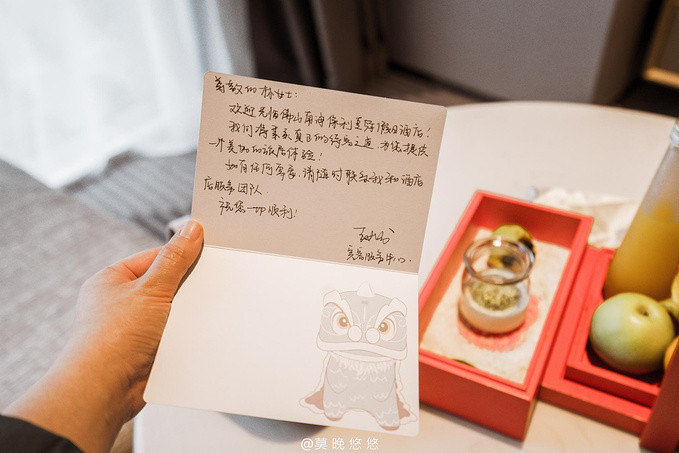 尊敬的林女士:
欢迎光临佛山南海保利皇冠假日酒店!
我们将秉承真正的待客之道,为您提供
一个美好的旅居体验!
如有任何需要,请随时联络我和酒店
店服务团队.
祝您一切顺利!
宾客服务中心.
@莫晚悠悠